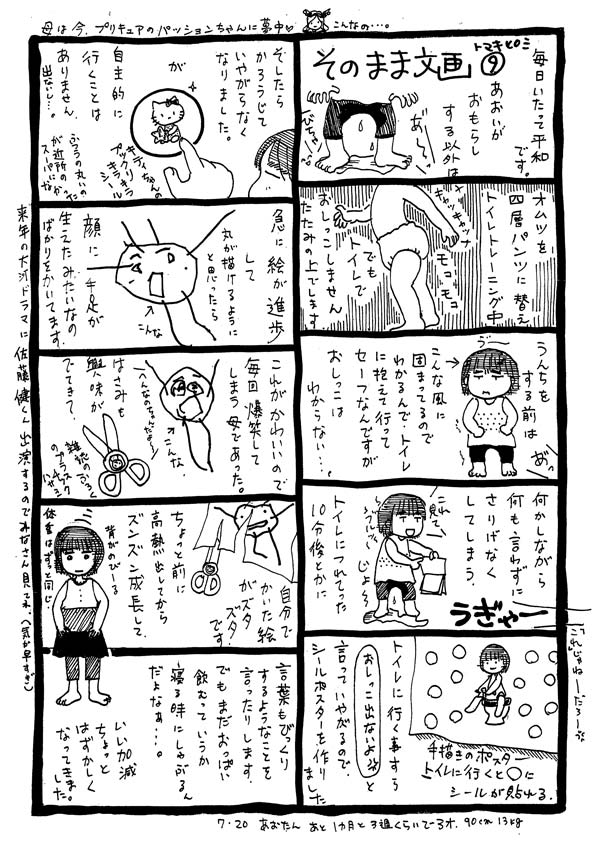 母は今、プリキュアのパッションちゃんに夢中♡
こんなの…。
トマキヒロミ
そのまま文画⑨
毎日いたって平和
です。
あおいが
おもらし
する以外は
あ〜
オムツを
四層パンツに替え
トイレトレーニング中
キャッキャッ
モコモコ
でも
トイレで
おしっこしません
たたみの上でします
うんちを
する前は
こんな風に
固まってるので
わかるんで、トイレ
に抱えて行って
セーフなんですが
おしっこは
わからない…。
何かしながら
何も言わずに
さりげなく
してしまう。
これ見て〜
じょろ〜
トイレにつれてった
10分後とかに
うぎゃー
これじゃねーだろーな
トイレに行く事すら
おしっこ出ないよ
と
言っていやがるので、
シールポスターを作り
ました
手描きのポスター
トイレに行くと○に
シールが貼れる。
そしたら
かろうじて
いやがらなく
なりました。
が
自主的に
行くことは
ありません。
出ないし…。
キティちゃんの
プックリキラキラシール
ぶつうの丸いの
が近所の
スーパーにな
急に絵が進歩
して
丸が描けるように
と思ったら
こんな
顔に手足が
生えたみたいなの
ばかりをかいてます。
これがかわいいので
毎回爆笑して
しまう母であった。
こんな
はさみも
興味が
でてきて、
雑誌のふろく
のプラスチック
ハサミ
自分で
かいた絵
がズタ
ズタ
です
ちょっと前に
高熱出してから
ズンズン成長して、
背がのびーる
体重はずっと同じ
言葉もびっくり
するようなことを
言ったりします。
でもまだおっぱい
飲むっていうか
寝る時にしゃぶるん
だよなぁ…。
いい加減
ちょっと
はずかしく
なってきました。
来年の大河ドラマに佐藤健くん出演するのでみなさん見てネ。(気が早すぎ)
7・20 あおたん あと1カ月と3週くらいで3才。90cm 13kg